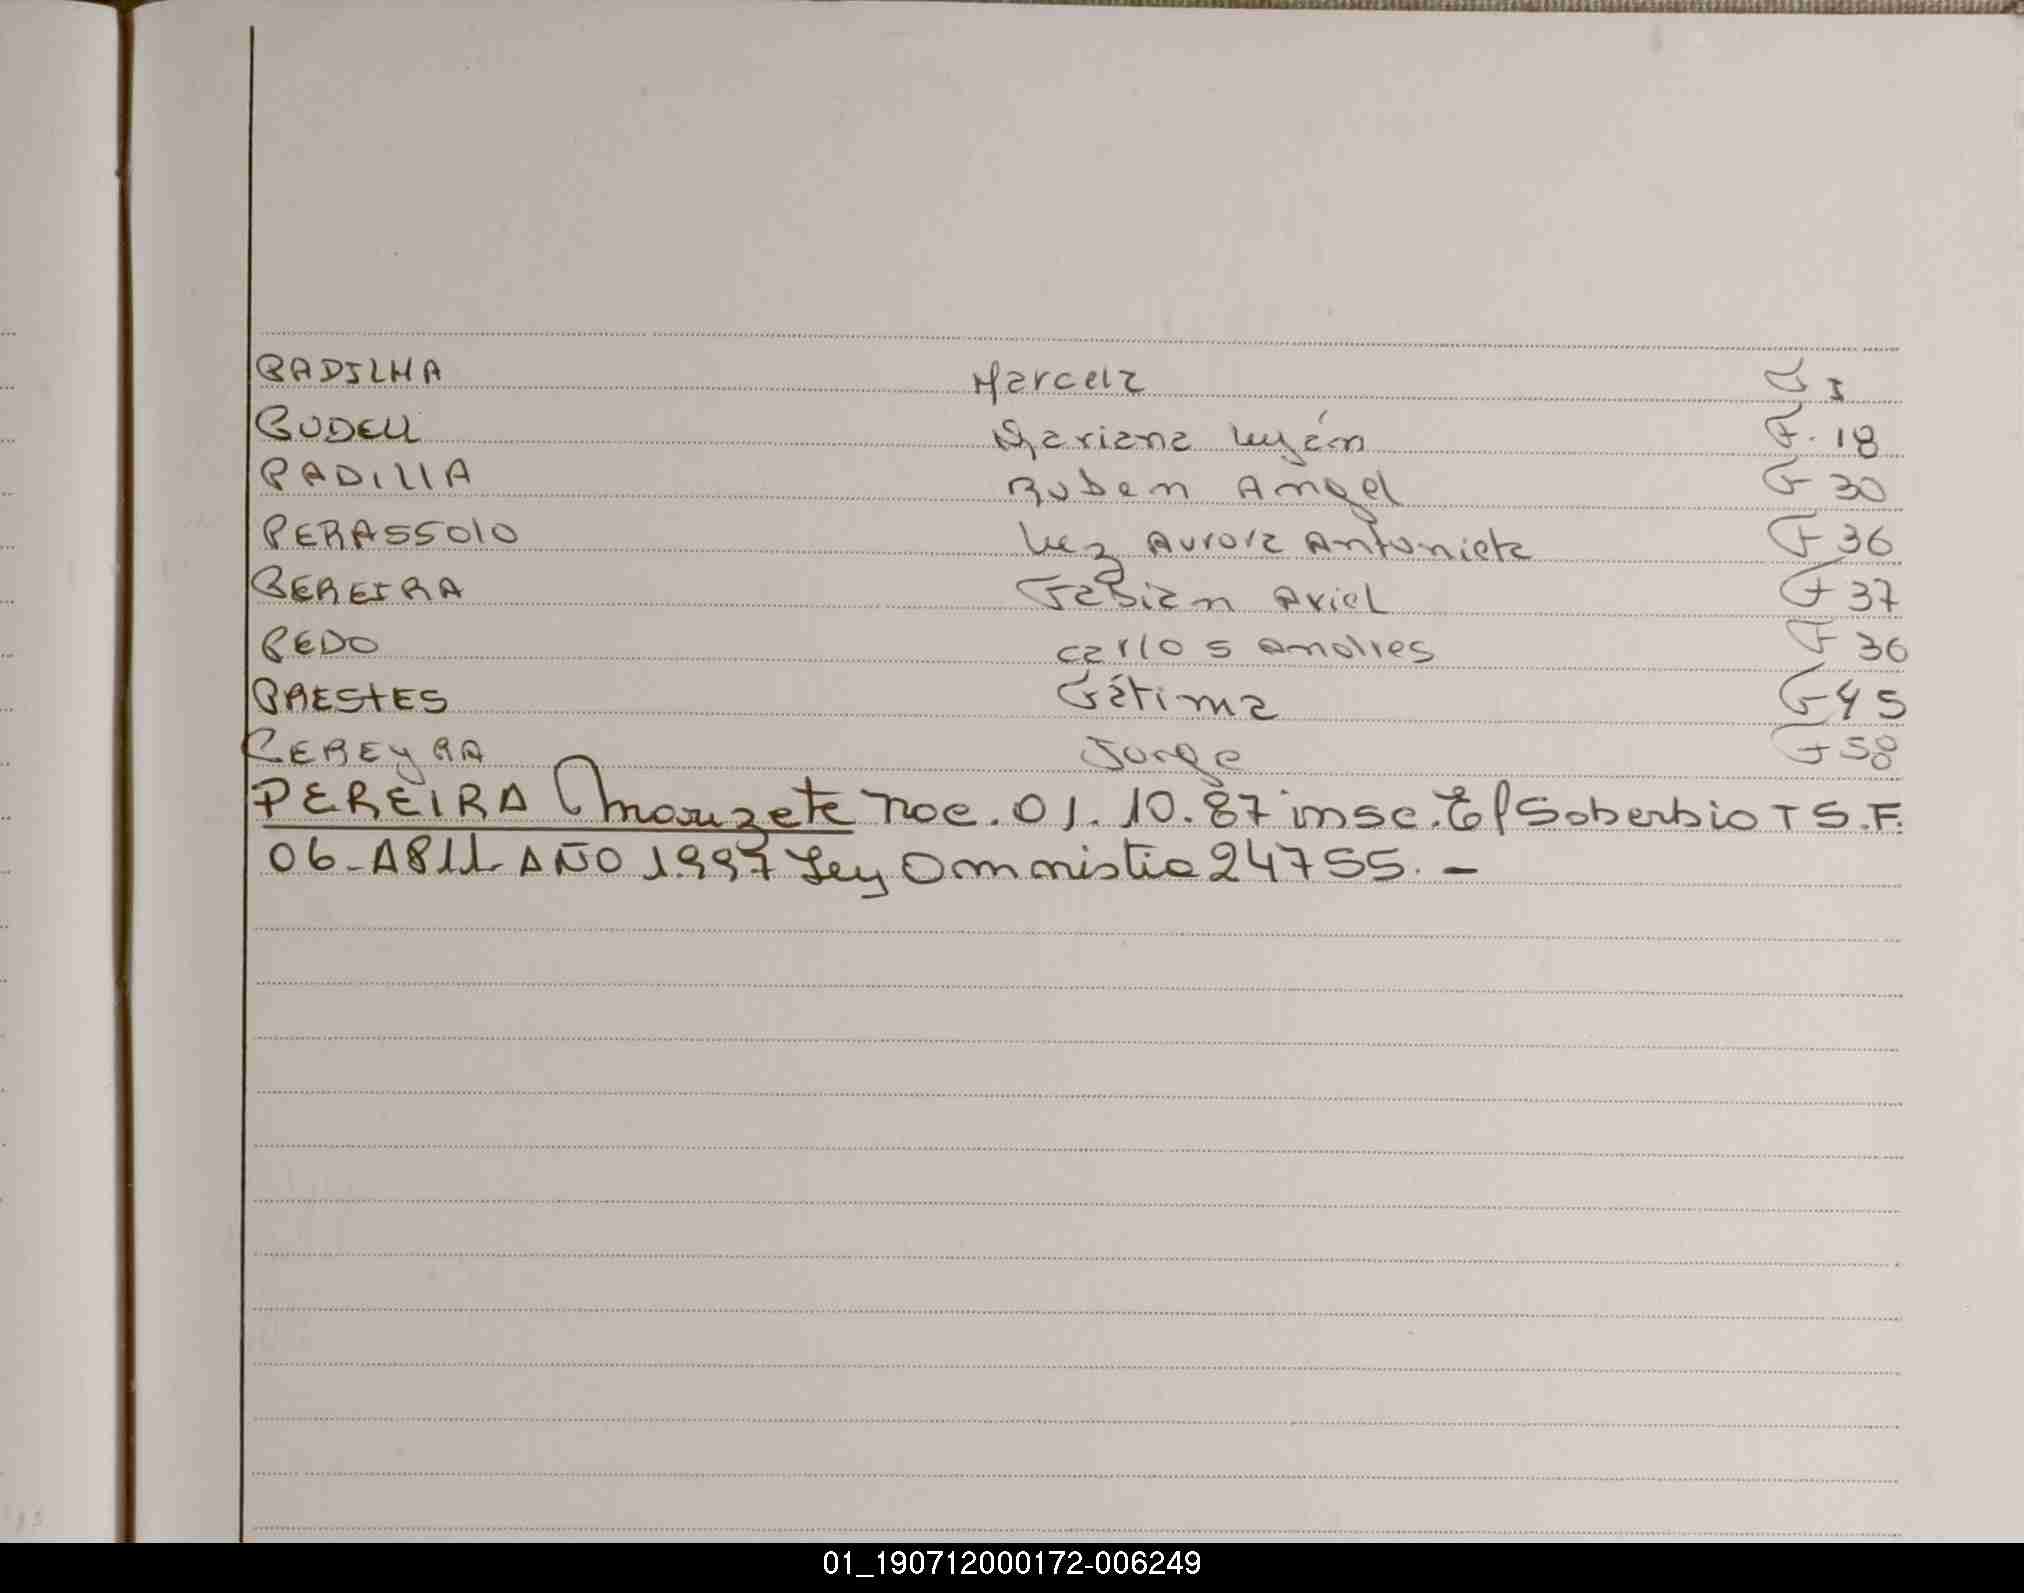 PADILHA Marcela F 1
PUDELL Mariana Luján F. 18
PADILLA Ruben Angel F 30
PERASSOLO Luz Aurora Antonieta F 36
PEREIRA Fabián Ariel F 37
PEDO Carlos Andres F 36
PRESTES Fátima F 45
PEREYRA Jorge F 58
PEREIRA nac. 01.10.87 insc. El Soberbio T S.F.
06-A811 AÑO 1.997 Ley Amnistia 24755.-
01_190712000172-006249